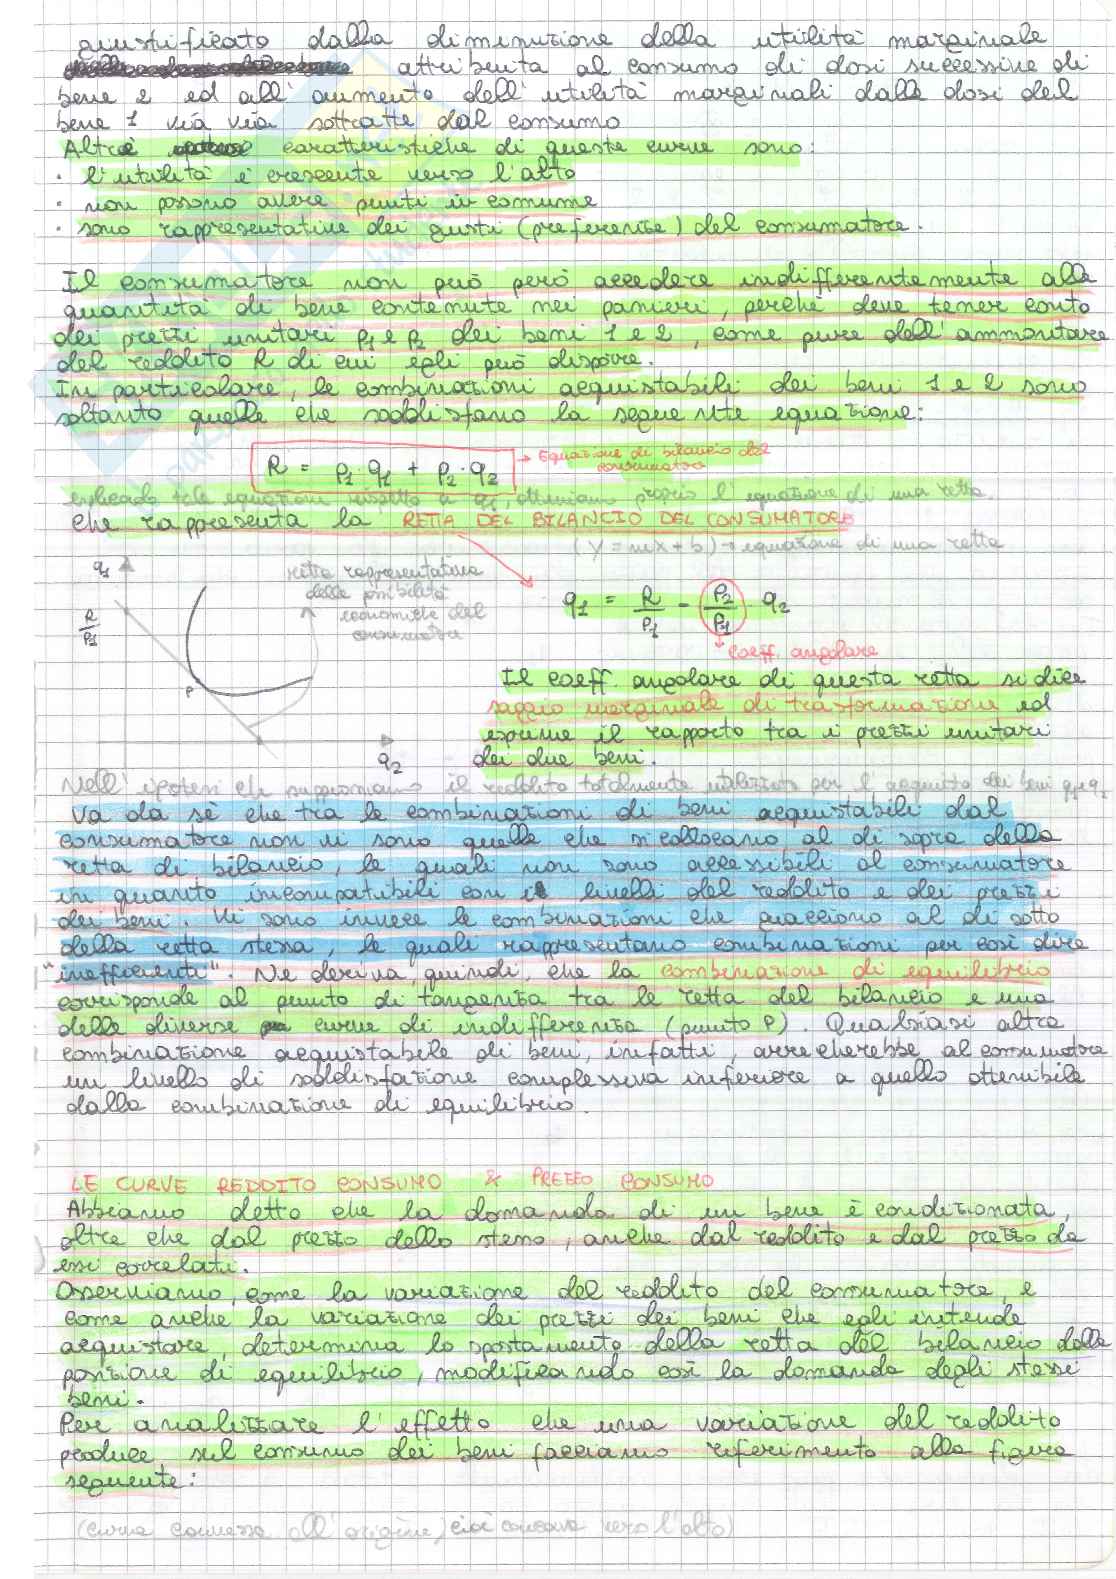 giustificato dalla diminuzione della utilità marginale
attribuita al consumo di dosi successive di
bene 2 ed all' aumento dell' utilità marginali dalle dosi del
bene 1 via via sottratte dal consumo
Altre caratteristiche di queste curve sono:
· l'utilità è crescente verso l'alto
· non possono avere punti in comune
· sono rappresentative dei gusti (preferenze) del consumatore.
Il consumatore non può però accedere indifferentemente alle
quantità di bene contenute nei panieri, perché deve tener conto
dei prezzi unitari p1 e p2 dei beni 1 e 2, come pure dell'ammontare
del reddito R di cui egli può disporre.
In particolare, le combinazioni acquistabili dei beni 1 e 2 sono
soltanto quelle che soddisfano la seguente equazione:
R = p1 · q1 + p2 · q2 → Equazione di bilancio del
consumatore
esplicando tale equazione rispetto a q1, otteniamo proprio l'equazione di una retta
che rappresenta la RETTA DEL BILANCIO DEL CONSUMATORE
(y = mx + b) → equazione di una retta
q1
retta rappresentativa
delle possibilità
economiche del
consumatore
R/P1
P
q2
q1 = R/P1 - P2/P1 · q2
coeff. angolare
Il coeff. angolare di questa retta si dice
saggio marginale di trasformazione ed
esprime il rapporto tra i prezzi unitari
dei due beni.
Nell' ipotesi che supponiamo il reddito totalmente utilizzato per l'acquisto dei beni q1 e q2
Va da sè che tra le combinazioni di beni acquistabili dal
consumatore non vi sono quelle che si collocano al di sopra della
retta di bilancio, le quali non sono accessibili al consumatore
in quanto incompatibili con i livelli del reddito e dei prezzi
dei beni. Vi sono invece le combinazioni che giacciono al di sotto
della retta stessa, le quali rappresentano combinazioni per così dire
"inefficienti". Ne deriva, quindi, che la combinazione di equilibrio
corrisponde al punto di tangenza tra le retta del bilancio e una
delle diverse curve di indifferenza (punto P). Qualsiasi altra
combinazione acquistabile di beni, infatti, arrecherebbe al consumatore
un livello di soddisfazione complessiva inferiore a quello ottenibile
dalla combinazione di equilibrio.
LE CURVE REDDITO CONSUMO & PREZZO CONSUMO
Abbiamo detto che la domanda di un bene è condizionata,
oltre che dal prezzo dello stesso, anche dal reddito e dal prezzo da
essi correlati.
Osserviamo, come la variazione del reddito del consumatore, e
come anche la variazione dei prezzi dei beni che egli intende
acquistare, determina lo spostamento della retta del bilancio dalla
posizione di equilibrio, modificando così la domanda degli stessi
beni.
Per analizzare l'effetto che una variazione del reddito
produce sul consumo dei beni facciamo riferimento alla figura
seguente:
(curva connessa all'origine, cioè concava verso l'alto)